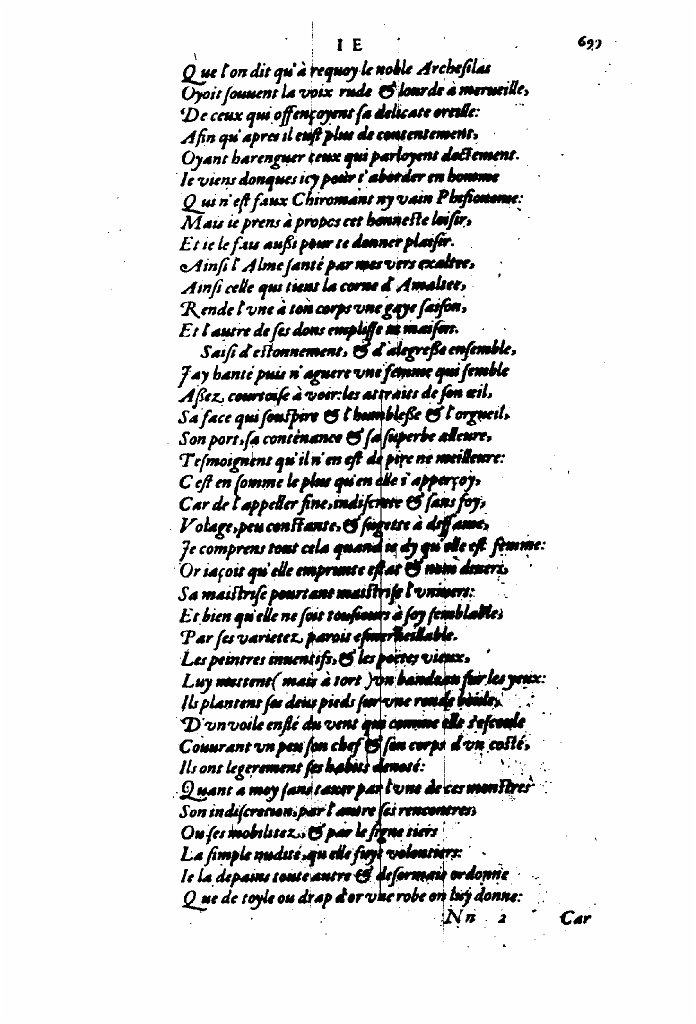 I E 697
Que l'on dit qu'à requoy le noble Archesilas
Oyoit souuent la voix rude & lourde à merueille,
De ceux qui offençoyent sa delicate oreille:
Afin qu'apres il eust plus de contentement,
Oyant harenguer ceux qui parloyent doctement.
Ie viens donques icy pour t'aborder en homme
Qui n'est faux Chiromant ny vain Phisionome:
Mais ie prens à propos cet honneste loisir,
Et ie le fais außi pour te donner plaisir.
Ainsi l'Alme santé par mes vers exaltee,
Ainsi celle qui tient la corne d'Amaltee,
Rende l'vne à ton corps vne gaye saison,
Et l'autre de ses dons emplisse ta maison.
Saisi d'estonnement, & d'alegreße ensemble,
J'ay hanté puis n'aguere vne femme qui semble
Aßez courtoise à voir: les attraits de son œil,
Sa face qui souspire & l'humbleße & l'orgueil,
Son port, sa contenance & sa superbe alleure,
Tesmoignent qu'il n'en est de pire ne meilleure:
C'est en somme le plus qu'en elle i'apperçoy,
Car de l'appeller fine, indiscrete & sans foy,
Volage, peu constante, & sugette à diffame,
Je comprens tout cela quand ie dy qu'elle est femme:
Or iaçoit qu'elle emprunte estat & nom diuers,
Sa maistrise pourtant maistrise l'vniuers:
Et bien qu'elle ne soit tousiours à soy semblable,
Par ses varietez parois esmerueillable.
Les peintres inuentifs, & les poetes vieux,
Luy mettent (mais à tort) vn bandeau sur les yeux:
Ils plantent ses deus pieds sur vne ronde boule,
D'vn voile enflé du vent qui comme elle s'escoule
Couurant vn peu son chef & son corps d'vn costé,
Ils ont legerement ses habits denoté:
Quant a moy sans taxer par l'vne de ces monstres
Son indiscretion, par l'autre ses rencontres,
Ou ses mobilitez, & par le signe tiers
La simple nudité, qu'elle fuyt volontiers:
Ie la depains toute autre & desormais ordonne
Que de toyle ou drap d'or vne robe on luy donne:
Nn 2 Car